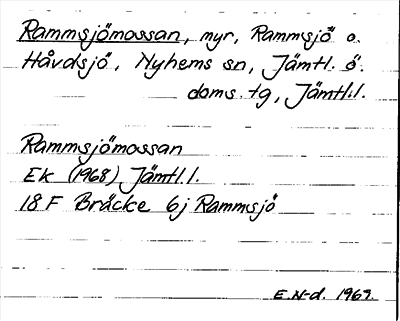 Rammsjömossan, myr, Rammsjö o.
Håvdsjö, Nyhems sn, Jämtl. ö.
doms. tg, Jämtl.l.
Rammsjömossan
Ek (1968) Jämtl.l.
18 F Bräcke 6j Rammsjö
E.N-d. 1969.